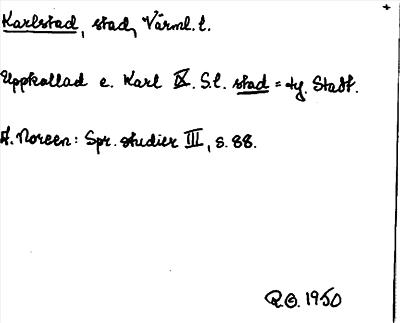 Karlstad, stad, Värml. l.
Uppkallad e. Karl IX. S.l. stad = ty. Stadt.
A. Noreen: Spr. studier III, s. 88.
R.O. 1950